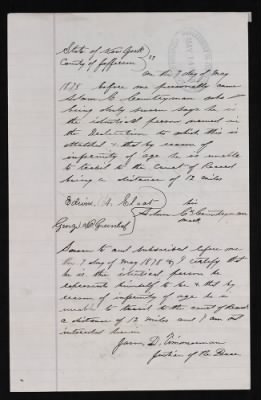 State of New York
County of Jefferson } ss
On the 7 day of May
1878 before me personally came
Adam C. Countryman who
being duly sworn says he is
the identical person named in
the Declaration to which this is
attached & that by reason of
infirmity of age he is unable
to travel to the Court of Record
being a distance of 12 miles
Edwin A.
his
Adam C Countryman
mark
Sworn to and subscribed before me
this 7 day of May 1878 & I certify that
he is the identical person he
represents himself to be & that by
reason of infirmity of age he is
unable to travel to the court of Record
a distance of 12 miles and I am not
interested herein
James D. Timmerman
Justice of the Peace